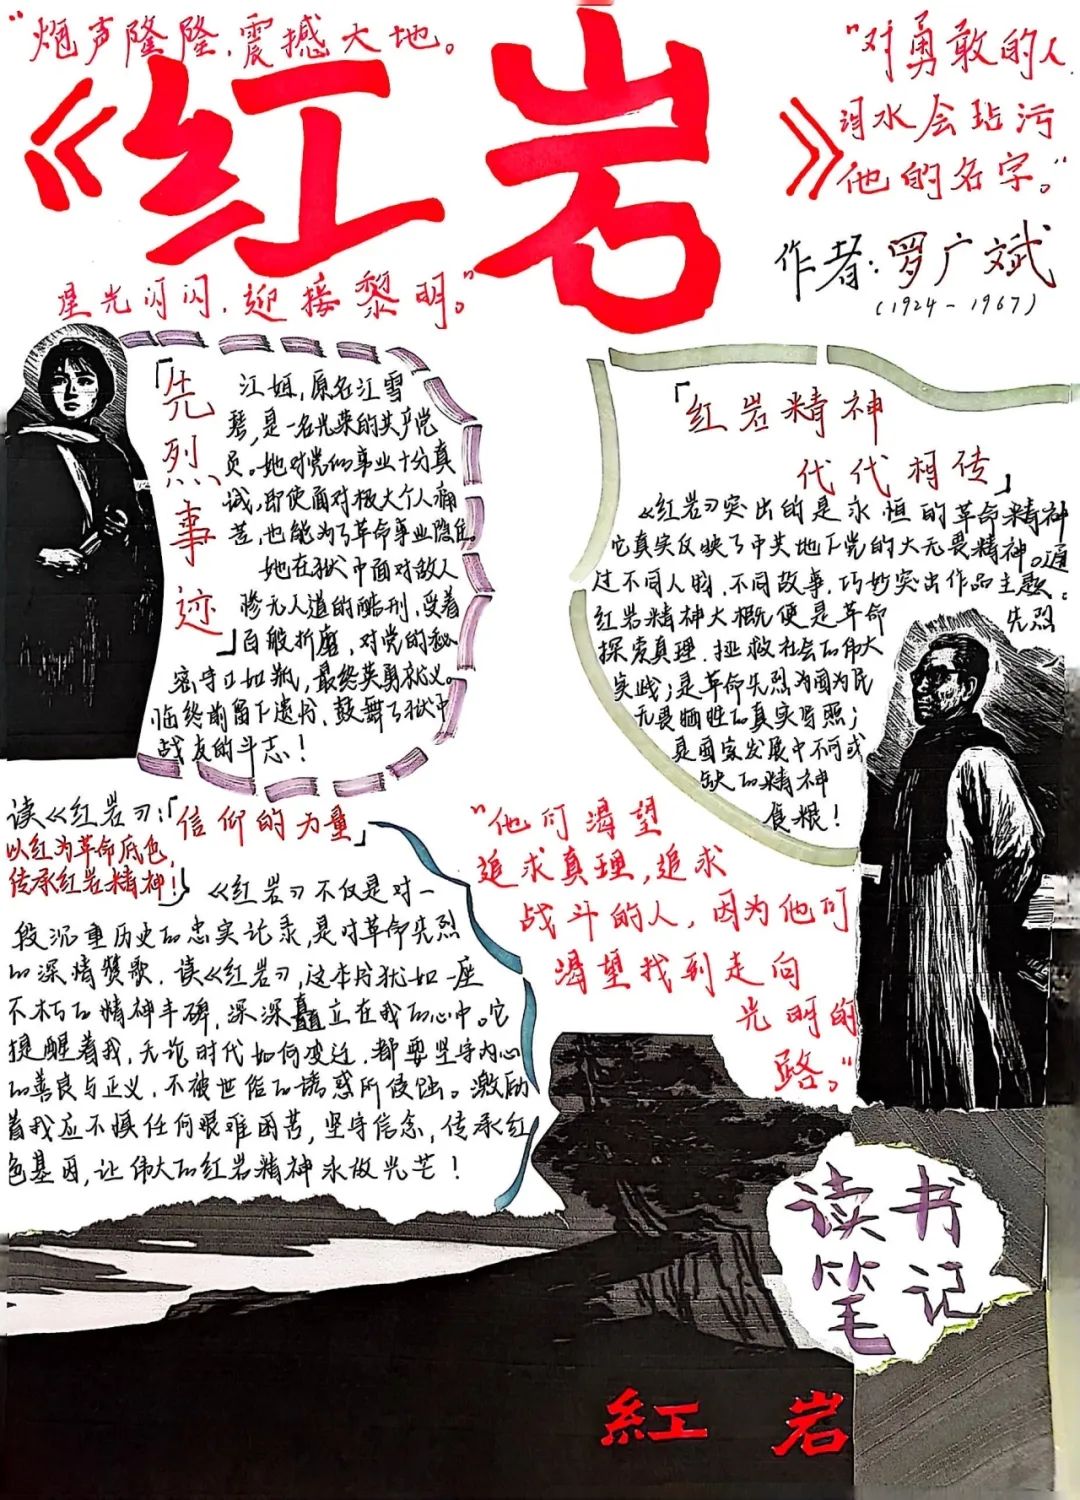 “炮声隆隆，震撼大地。
《红岩》
星光闪闪，迎接黎明。”
“对勇敢的人
泪水会玷污
他的名字。”
作者：罗广斌
（1924－1967）
「先烈事迹」
江姐，原名江雪
琴，是一名光荣的共产党
员。她对党的事业十分真
诚，即使面对极大个人痛
苦，也能为了革命事业隐住。
她在狱中面对敌人
惨无人道的酷刑，受着
百般折磨，对党的秘
密守口如瓶，最终英勇就义。
临终前留下遗书，鼓舞了狱中
战友的斗志！
「红岩精神
代代相传」
《红岩》突出的是永恒的革命精神
它真实反映了中共地下党的大无畏精神。通
过不同人物，不同故事，巧妙突出作品主题。
红岩精神大概便是革命先烈
探索真理、拯救社会的伟大
实践；是革命先烈为国为民
无畏牺牲的真实写照；
是国家发展中不可或
缺的精神
食粮！
读《红岩》：「信仰的力量」
以红为革命底色，
传承红岩精神！
《红岩》不仅是对一
段沉重历史的忠实记录，是对革命先烈
的深情赞歌。读《红岩》，这本书犹如一座
不朽的精神丰碑，深深矗立在我的心中。它
提醒着我，无论时代如何变迁，都要坚守内心
的善良与正义，不被世俗的诱惑所侵蚀。激励
着我应不惧任何艰难困苦，坚守信念，传承红
色基因，让伟大的红岩精神永放光芒！
“他们渴望
追求真理，追求
战斗的人，因为他们
渴望找到走向
光明的
路。”
读书
笔记
紅岩